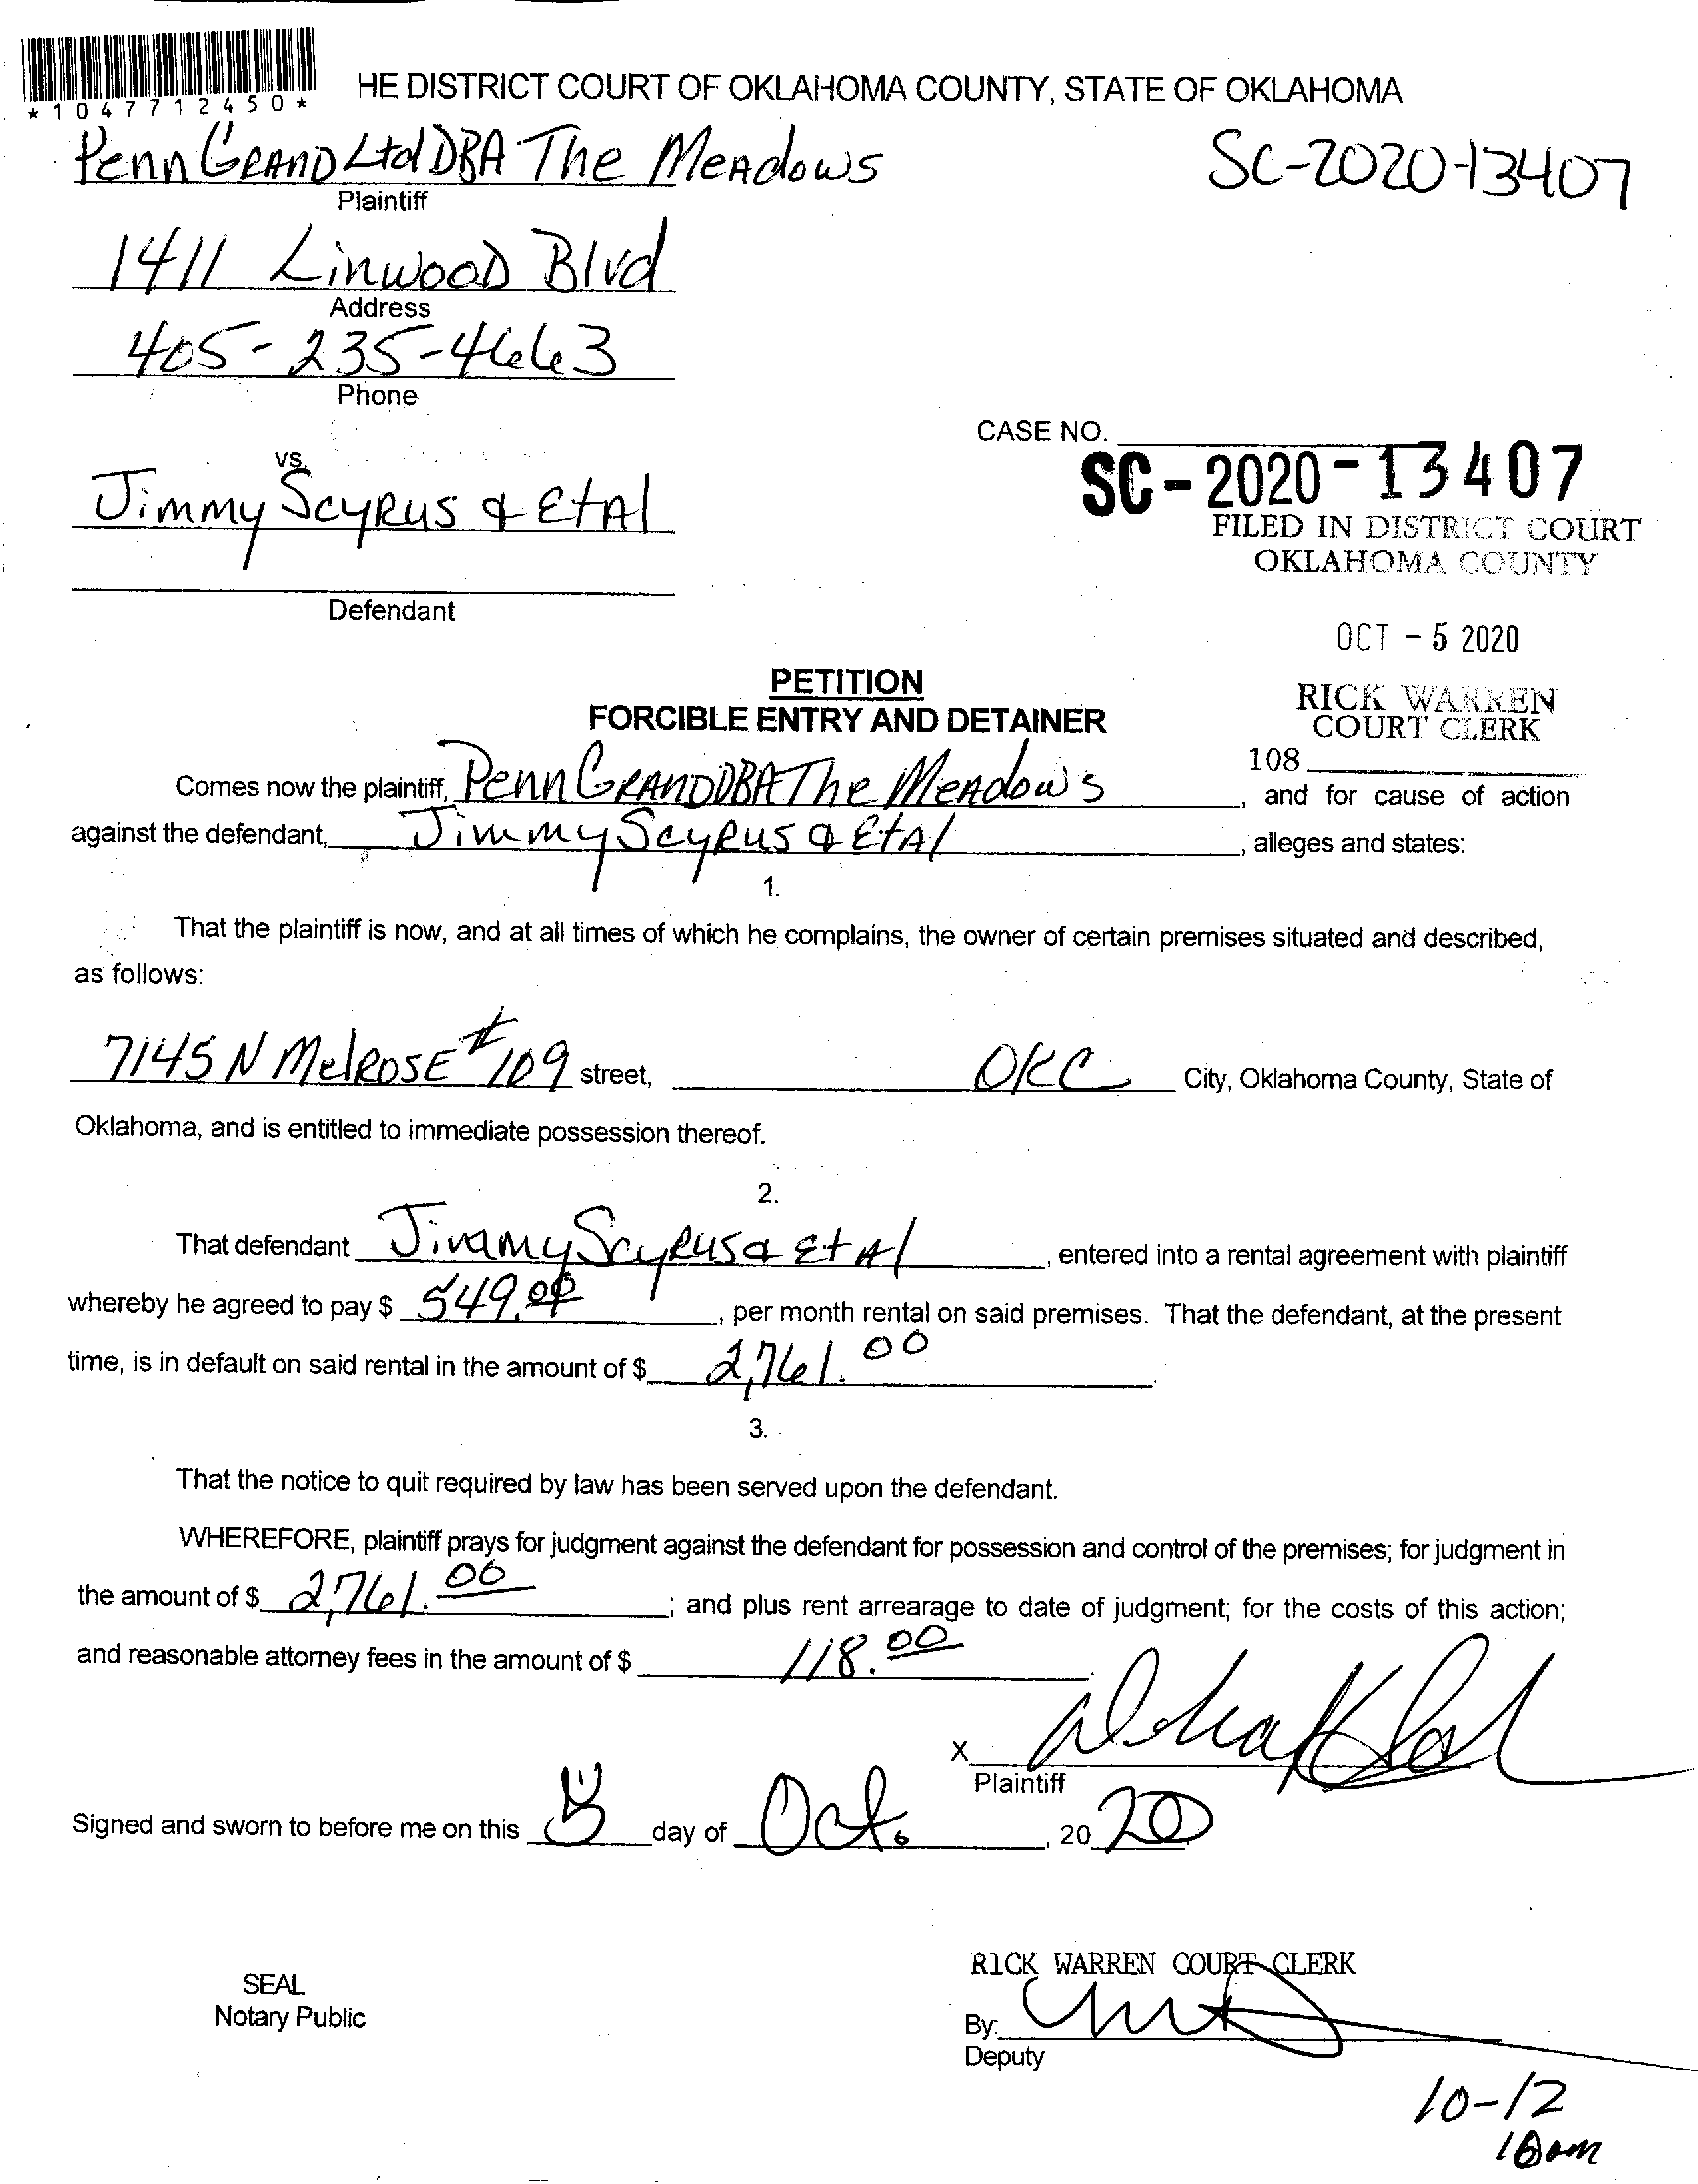 *1047712450*
HE DISTRICT COURT OF OKLAHOMA COUNTY, STATE OF OKLAHOMA
Penn GRAND Ltd DBA The Meadows
SC-2020-13407
Plaintiff
1411 Linwood Blvd
Address
405-235-4663
Phone
CASE NO.
vs.
SC-2020-13407
Jimmy Scyrus & EtAl
FILED IN DISTRICT COURT
OKLAHOMA COUNTY
Defendant
OCT - 5 2020
PETITION
RICK WARREN
FORCIBLE ENTRY AND DETAINER
COURT CLERK
108
Comes now the plaintiff, Penn GRAND DBA The Meadows, and for cause of action
against the defendant, Jimmy Scyrus & EtAl, alleges and states:
1.
That the plaintiff is now, and at all times of which he complains, the owner of certain premises situated and described,
as follows:
7145 N MelROSE #109 street, OKC City, Oklahoma County, State of
Oklahoma, and is entitled to immediate possession thereof.
2.
That defendant Jimmy Scyrus & EtAl, entered into a rental agreement with plaintiff
whereby he agreed to pay $ 549.00, per month rental on said premises. That the defendant, at the present
time, is in default on said rental in the amount of $ 2,761.00.
3.
That the notice to quit required by law has been served upon the defendant.
WHEREFORE, plaintiff prays for judgment against the defendant for possession and control of the premises; for judgment in
the amount of $ 2,761.00; and plus rent arrearage to date of judgment; for the costs of this action;
and reasonable attorney fees in the amount of $ 118.00.
X
Plaintiff
Signed and sworn to before me on this 5 day of Oct., 20 20
RICK WARREN COURT CLERK
SEAL
Notary Public
By:
Deputy
10-12
10am